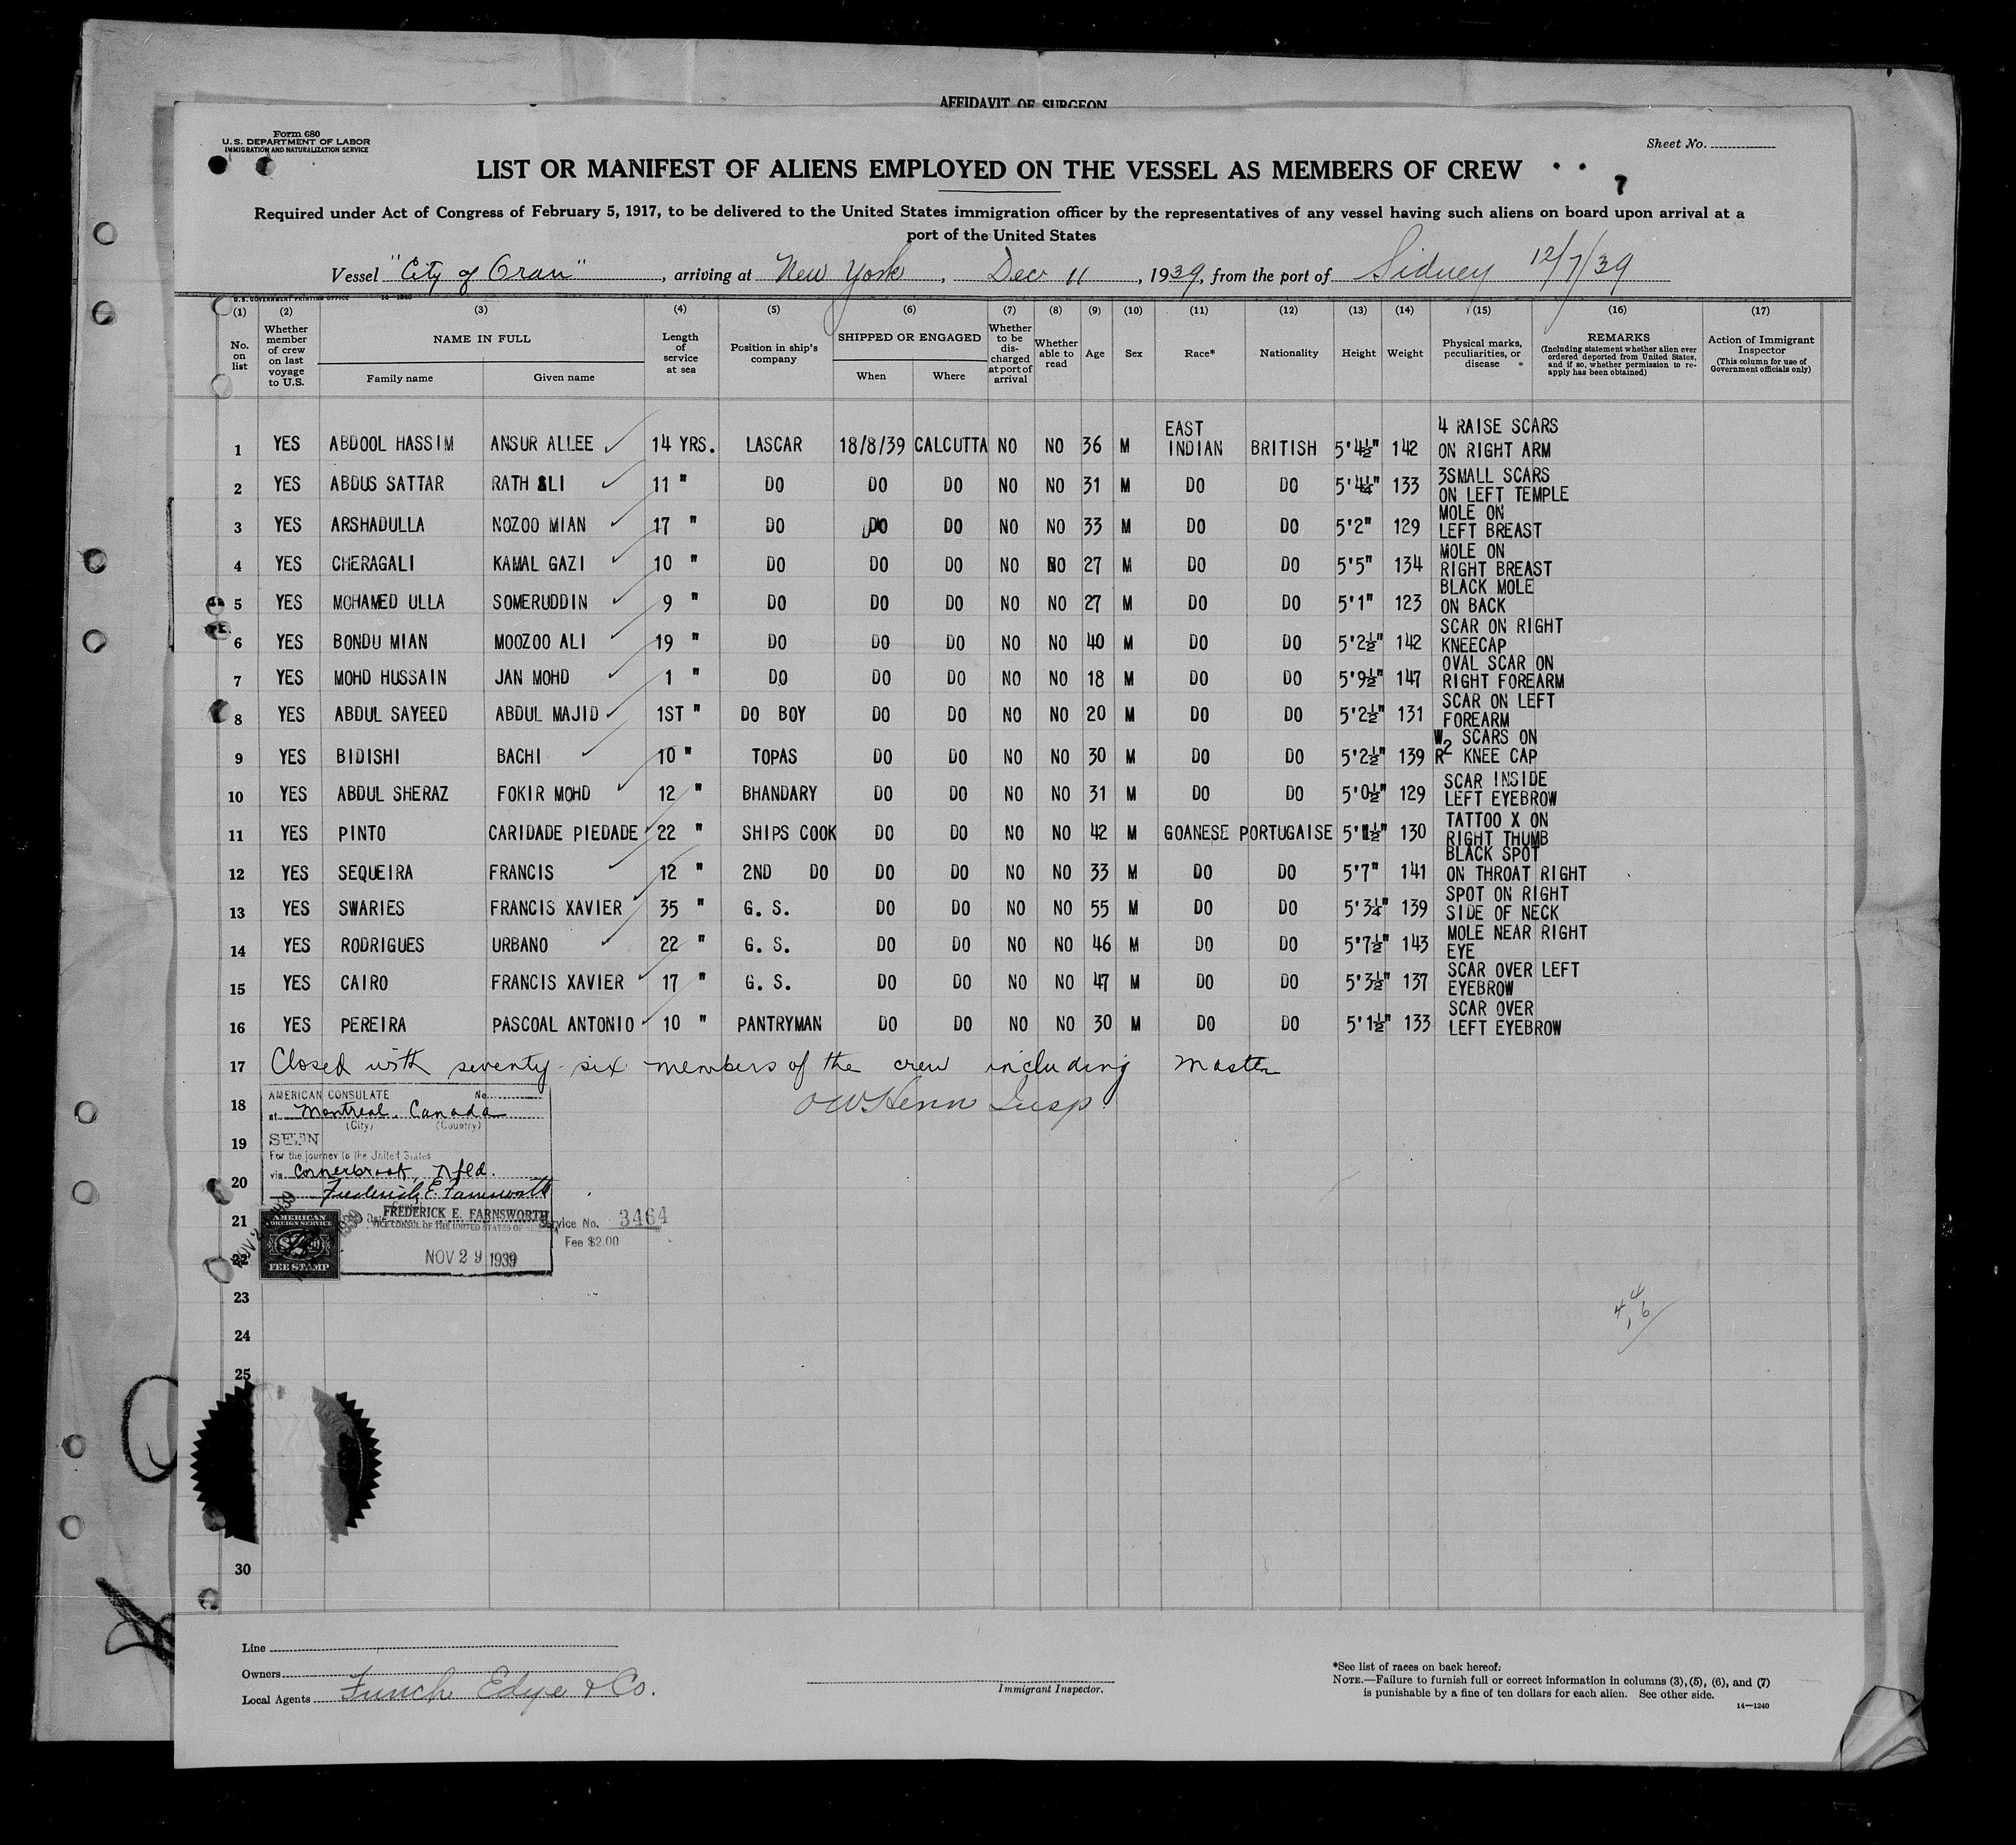 AFFIDAVIT OF SURGEON
Form 680
U.S. DEPARTMENT OF LABOR
IMMIGRATION AND NATURALIZATION SERVICE
Sheet No.
LIST OR MANIFEST OF ALIENS EMPLOYED ON THE VESSEL AS MEMBERS OF CREW
7
Required under Act of Congress of February 5, 1917, to be delivered to the United States immigration officer by the representatives of any vessel having such aliens on board upon arrival at a
port of the United States
Vessel "City of Oran", arriving at New York, Dec 11, 1939, from the port of Sidney 12/7/39
U.S. GOVERNMENT PRINTING OFFICE 14—1240
(1) (2) (3) (4) (5) (6) (7) (8) (9) (10) (11) (12) (13) (14) (15) (16) (17)
No. on list
Whether member of crew on last voyage to U.S.
NAME IN FULL
Family name
Given name
Length of service at sea
Position in ship's company
SHIPPED OR ENGAGED
When
Where
Whether to be discharged at port of arrival
Whether able to read
Age
Sex
Race*
Nationality
Height
Weight
Physical marks, peculiarities, or disease
REMARKS
(Including statement whether alien ever ordered deported from United States, and if so, whether permission to reapply has been obtained)
Action of Immigrant Inspector
(This column for use of Government officials only)
1 YES ABDOOL HASSIM ANSUR ALLEE 14 YRS. LASCAR 18/8/39 CALCUTTA NO NO 36 M EAST INDIAN BRITISH 5'4½" 142 4 RAISE SCARS ON RIGHT ARM
2 YES ABDUS SATTAR RATH ALI 11 " DO DO DO NO NO 31 M DO DO 5'4¼" 133 3SMALL SCARS ON LEFT TEMPLE
3 YES ARSHADULLA NOZOO MIAN 17 " DO DO DO NO NO 33 M DO DO 5'2" 129 MOLE ON LEFT BREAST
4 YES CHERAGALI KAMAL GAZI 10 " DO DO DO NO NO 27 M DO DO 5'5" 134 MOLE ON RIGHT BREAST
5 YES MOHAMED ULLA SOMERUDDIN 9 " DO DO DO NO NO 27 M DO DO 5'1" 123 BLACK MOLE ON BACK
6 YES BONDU MIAN MOOZOO ALI 19 " DO DO DO NO NO 40 M DO DO 5'2½" 142 SCAR ON RIGHT KNEECAP
7 YES MOHD HUSSAIN JAN MOHD 1 " DO DO DO NO NO 18 M DO DO 5'9½" 147 OVAL SCAR ON RIGHT FOREARM
8 YES ABDUL SAYEED ABDUL MAJID 1ST " DO BOY DO DO NO NO 20 M DO DO 5'2½" 131 SCAR ON LEFT FOREARM
9 YES BIDISHI BACHI 10 " TOPAS DO DO NO NO 30 M DO DO 5'2½" 139 W 2 SCARS ON R KNEE CAP
10 YES ABDUL SHERAZ FOKIR MOHD 12 " BHANDARY DO DO NO NO 31 M DO DO 5'0½" 129 SCAR INSIDE LEFT EYEBROW
11 YES PINTO CARIDADE PIEDADE 22 " SHIPS COOK DO DO NO NO 42 M GOANESE PORTUGAISE 5'1½" 130 TATTOO X ON RIGHT THUMB
12 YES SEQUEIRA FRANCIS 12 " 2ND DO DO DO NO NO 33 M DO DO 5'7" 141 BLACK SPOT ON THROAT RIGHT
13 YES SWARIES FRANCIS XAVIER 35 " G. S. DO DO NO NO 55 M DO DO 5'3¼" 139 SPOT ON RIGHT SIDE OF NECK
14 YES RODRIGUES URBANO 22 " G. S. DO DO NO NO 46 M DO DO 5'7½" 143 MOLE NEAR RIGHT EYE
15 YES CAIRO FRANCIS XAVIER 17 " G. S. DO DO NO NO 47 M DO DO 5'3½" 137 SCAR OVER LEFT EYEBROW
16 YES PEREIRA PASCOAL ANTONIO 10 " PANTRYMAN DO DO NO NO 30 M DO DO 5'1½" 133 SCAR OVER LEFT EYEBROW
17 Closed with seventy-six members of the crew including Master
18
AMERICAN CONSULATE No.
at Montreal, Canada
(City) (Country)
19 SEEN
For the journey to the United States
20 via Cornerbrook, Nfld.
Frederick E. Farnsworth
21 FREDERICK E. FARNSWORTH
VICE CONSUL OF THE UNITED STATES OF
Service No. 3464
Fee $2.00
AMERICAN
FOREIGN SERVICE
FEE STAMP
22 NOV 29 1939
23
24
25
30
Line
Owners
Local Agents Funch Edye & Co.
Immigrant Inspector.
*See list of races on back hereof.
NOTE.—Failure to furnish full or correct information in columns (3), (5), (6), and (7)
is punishable by a fine of ten dollars for each alien. See other side.
14—1240